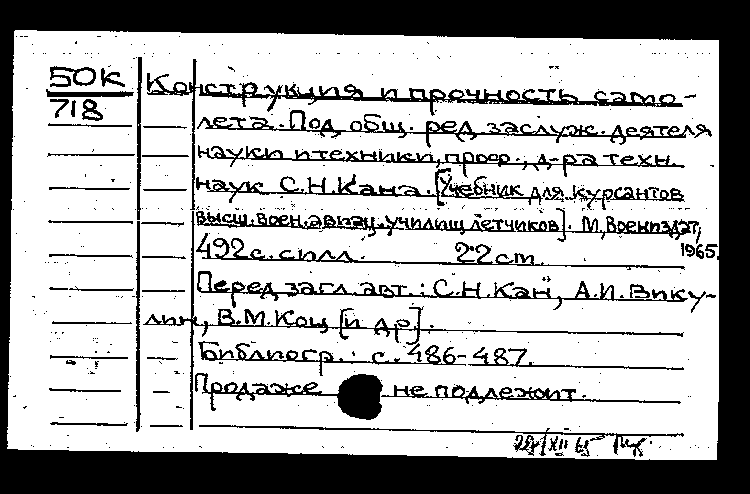 50К Конструкция и прочность само-
718 лета. Под общ. ред. заслуж. деятеля
науки и техники, проф., д-ра техн.
наук С.Н. Кана. [Учебник для курсантов
высш. воен. авиац. училищ летчиков]. М, Воениздат,
1965.
492 с. с илл. 22 cm.
Перед загл. авт.: С.Н. Кан, А.И. Вику-
лин, В.М. Кощ [и др.].
Библиогр.: с. 486-487.
Продаже не подлежит.
XII 65